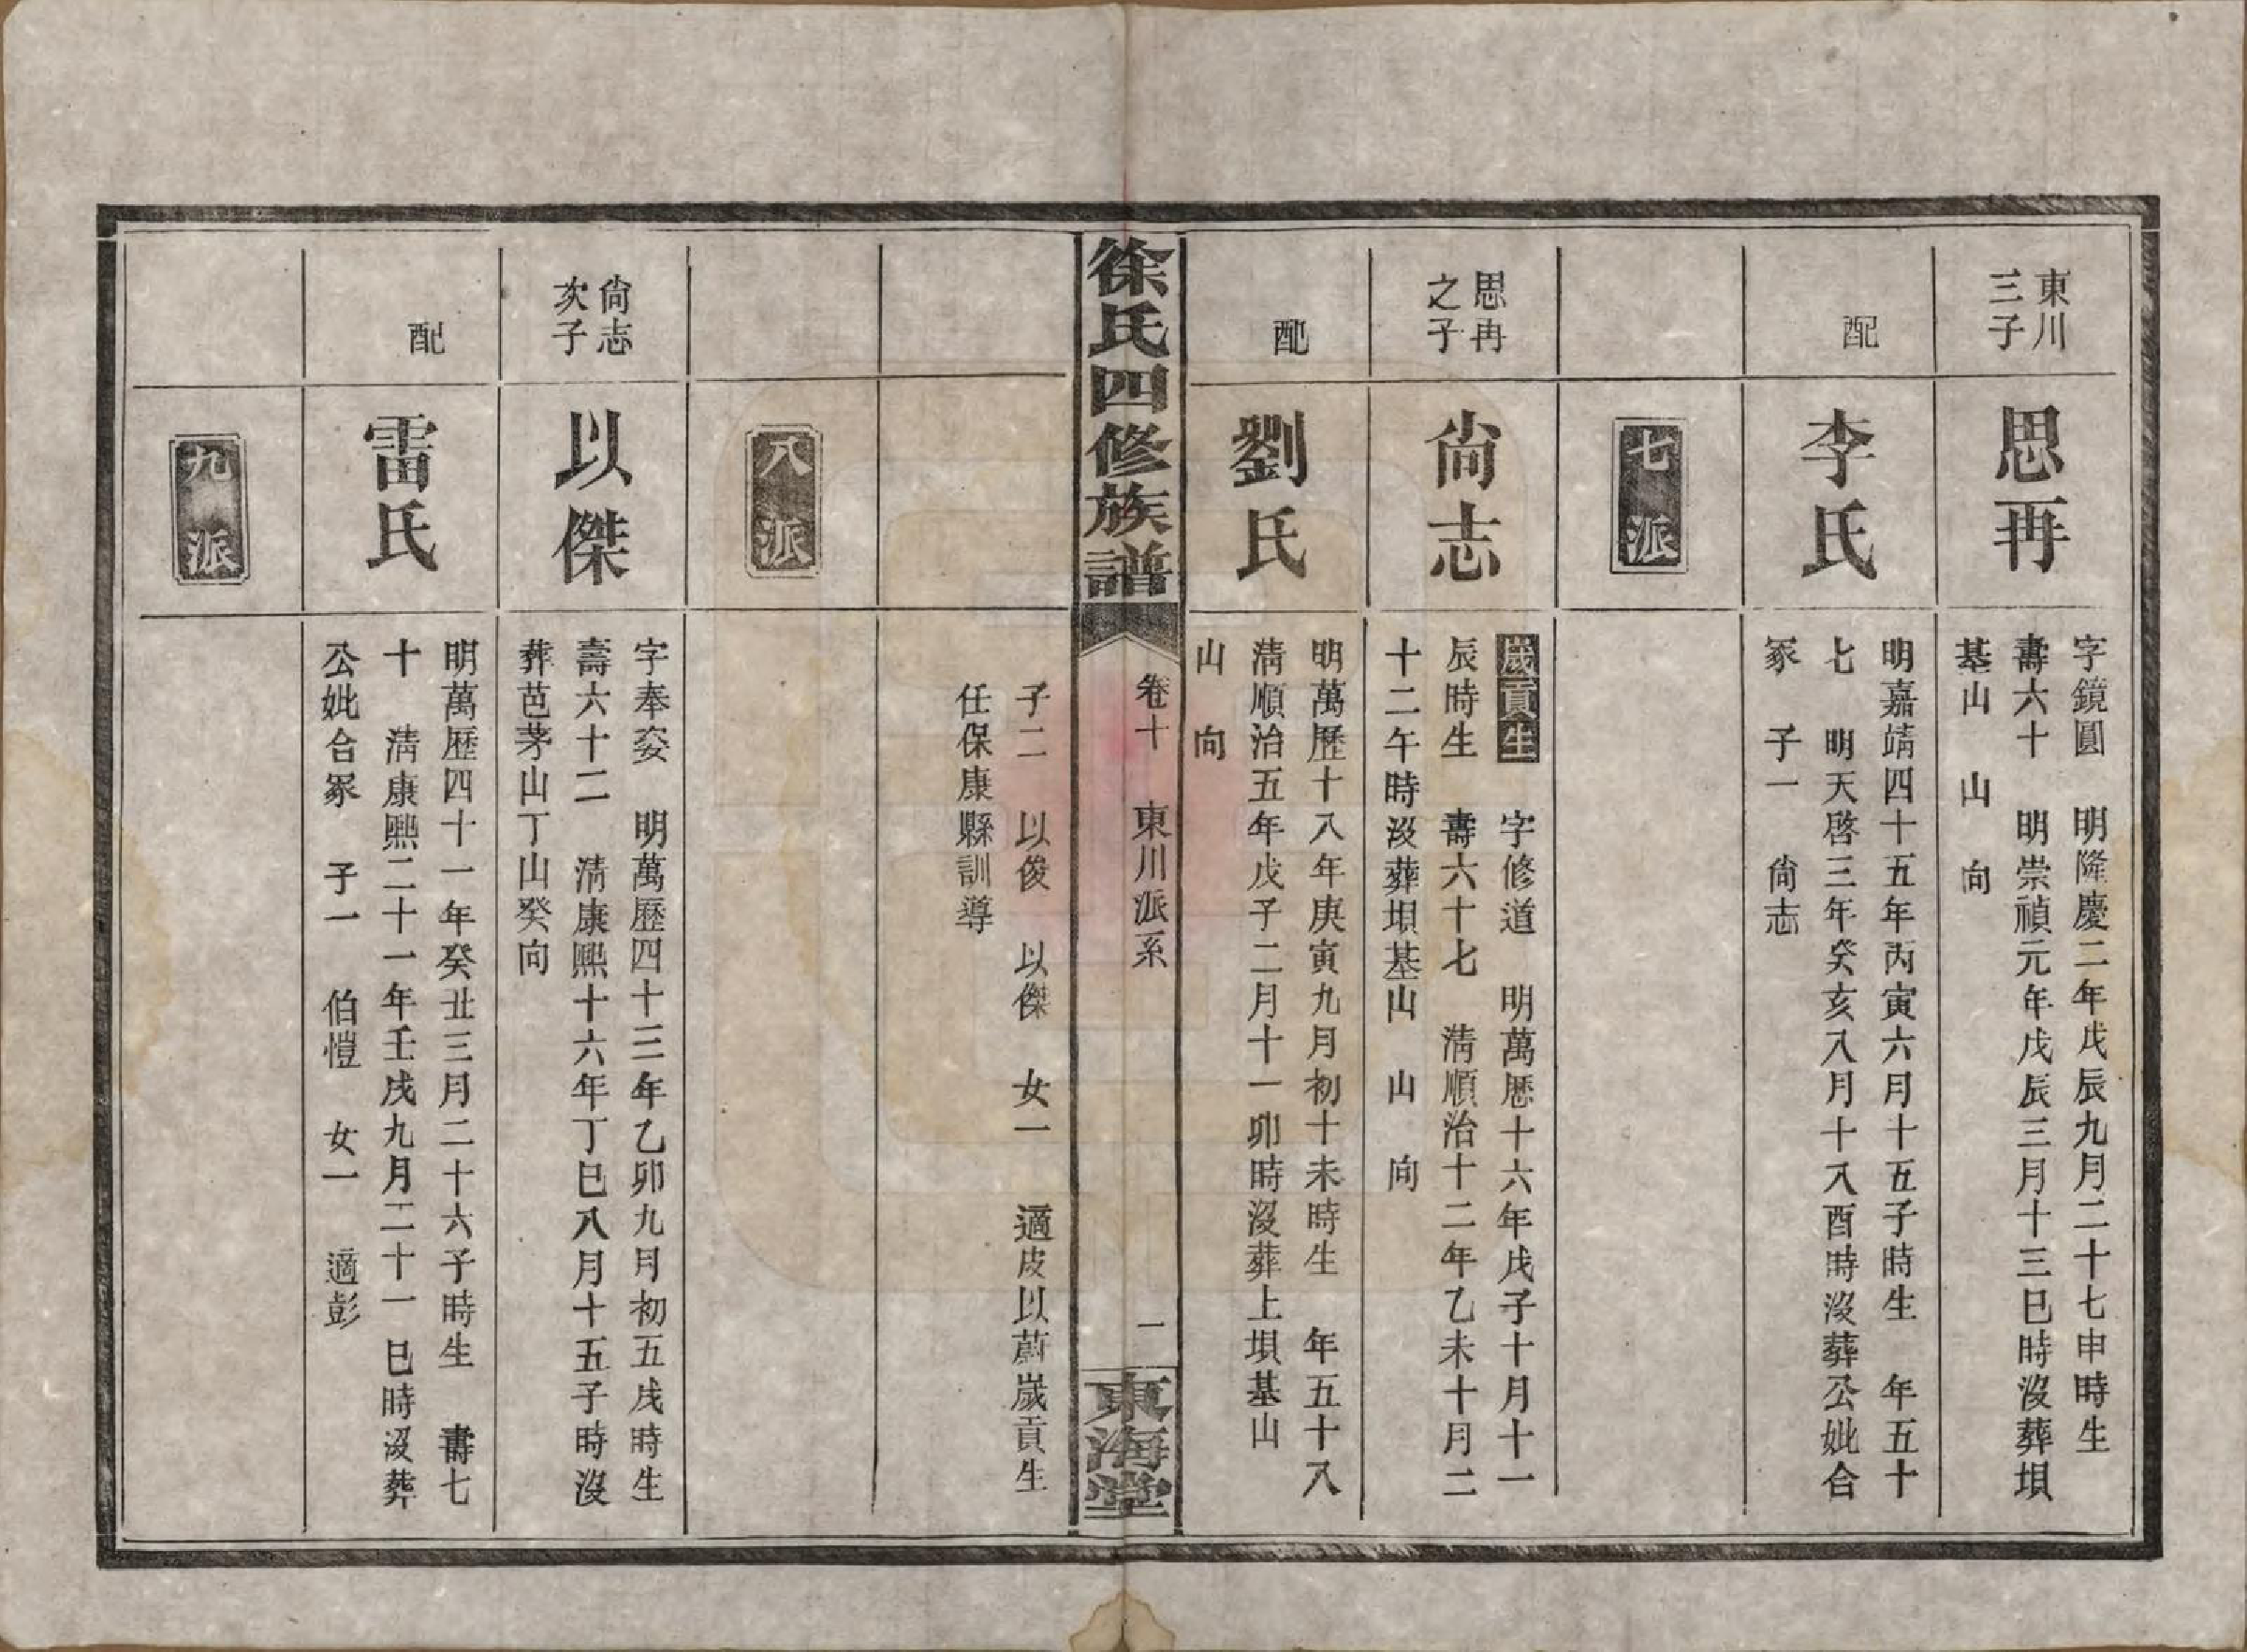 東川
三子
思再
字鏡圓　明隆慶二年戊辰九月二十七申時生
壽六十　明崇禎元年戊辰三月十三巳時沒葬垻
基山　山　向
配
李氏
明嘉靖四十五年丙寅六月十五子時生　年五十
七　明天啓三年癸亥八月十八酉時沒葬公妣合
冢　子一　尙志
七派
思再
之子
尙志
歲貢生　字修道　明萬歷十六年戊子十月十一
辰時生　壽六十七　淸順治十二年乙未十月二
十二午時沒葬垻基山　山　向
配
劉氏
明萬歷十八年庚寅九月初十未時生　年五十八
淸順治五年戊子二月十一卯時沒葬上垻基山
山　向
徐氏四修族譜
卷十　東川派系
一
東海堂
子二　以俊　以傑　女一　適皮以蔚歲貢生
任保康縣訓導
八派
尙志
次子
以傑
字奉姿　明萬歷四十三年乙卯九月初五戌時生
壽六十二　淸康熙十六年丁巳八月十五子時沒
葬芭茅山丁山癸向
配
雷氏
明萬歷四十一年癸丑三月二十六子時生　壽七
十　淸康熙二十一年壬戌九月二十一巳時沒葬
公妣合冢　子一　伯愷　女一　適彭
九派